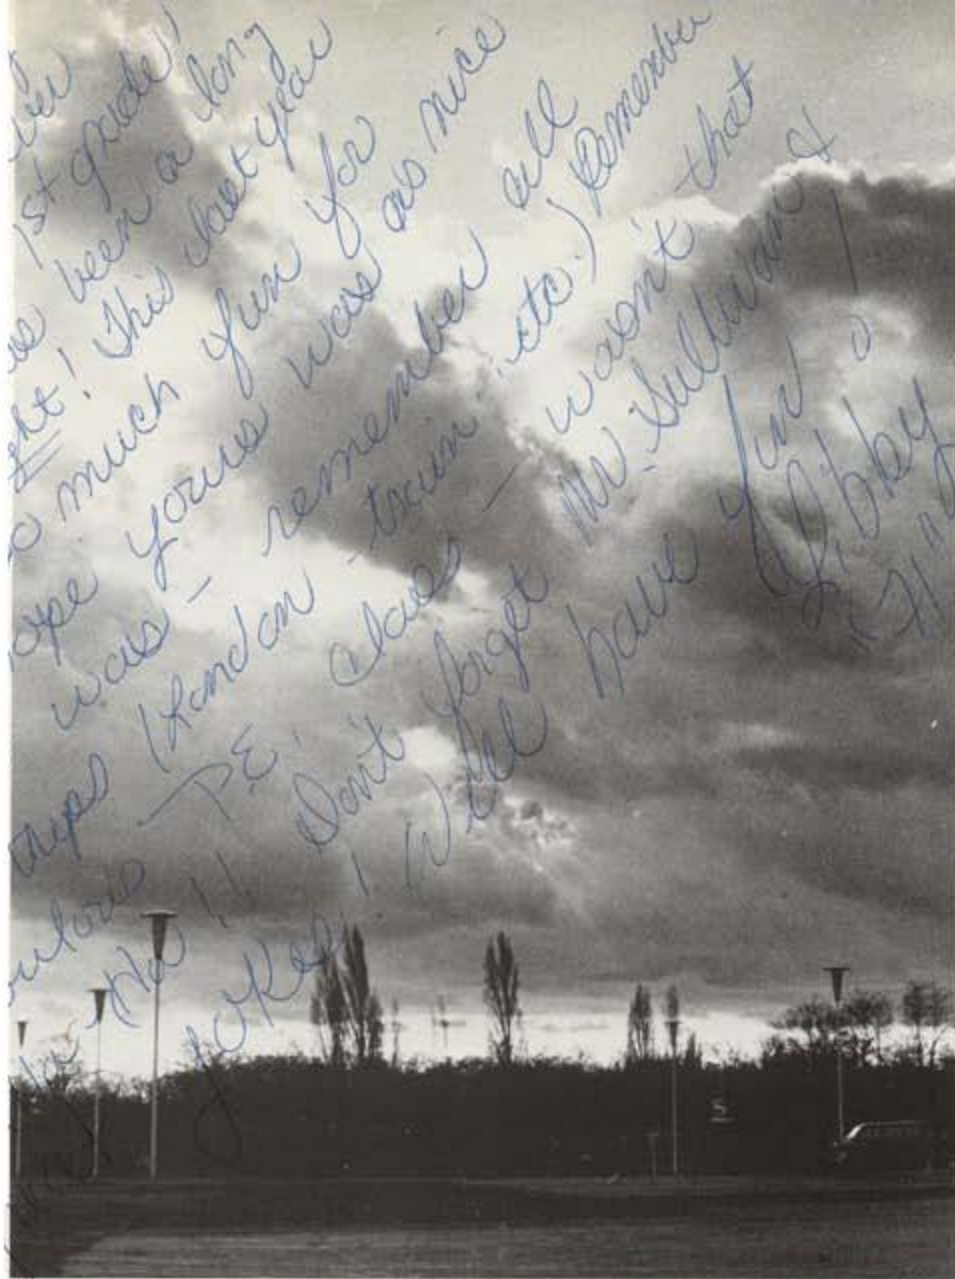 1st grade!
been a long
ght! This last year
so much fun for
ope yours was as nice
was - remember all
trips (London - train, etc.) Remember
P.E. class - wasn't that
Ha!! Don't forget Mr. Sullivan &
jokes! Will have fun
Libby